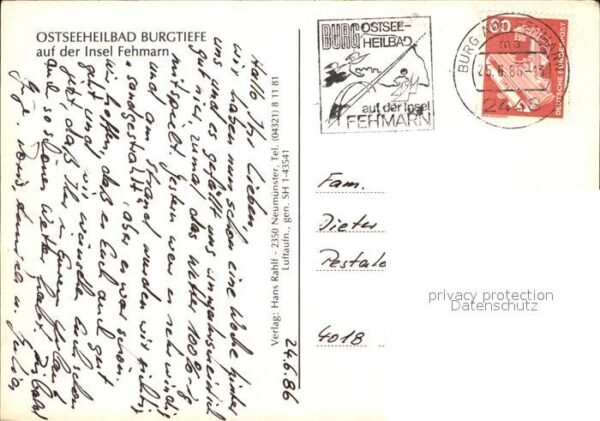 OSTSEEHEILBAD BURGTIEFE
auf der Insel Fehmarn
Hallo Ihr Lieben!
wir haben nun schon eine Woche hinter
uns und es gefällt uns
gut hier, zumal das Wetter 100%ig
mitspielt. Gestern war es sehr windig
und am Strand wurden wir richtig
"sandgestrahlt", aber es war schön.
wir hoffen, daß es Euch auch gut
geht und wir wünschen Euch schon
jetzt, daß Ihr in Eurem Urlaub
auch so schönes Wetter habt.
Verlag: Hans Rahlf - 2350 Neumünster, Tel. (04321) 8 11 81
Luftaufn., gen. SH 1-43541
24.6.86
BURG OSTSEE-
HEILBAD
auf der Insel
FEHMARN
BURG AUF FEHMARN
25.6.86
2448
60
DEUTSCHE BUNDESPOST
Fam.
Dieter
Pestalo
4018
privacy protection
Datenschutz